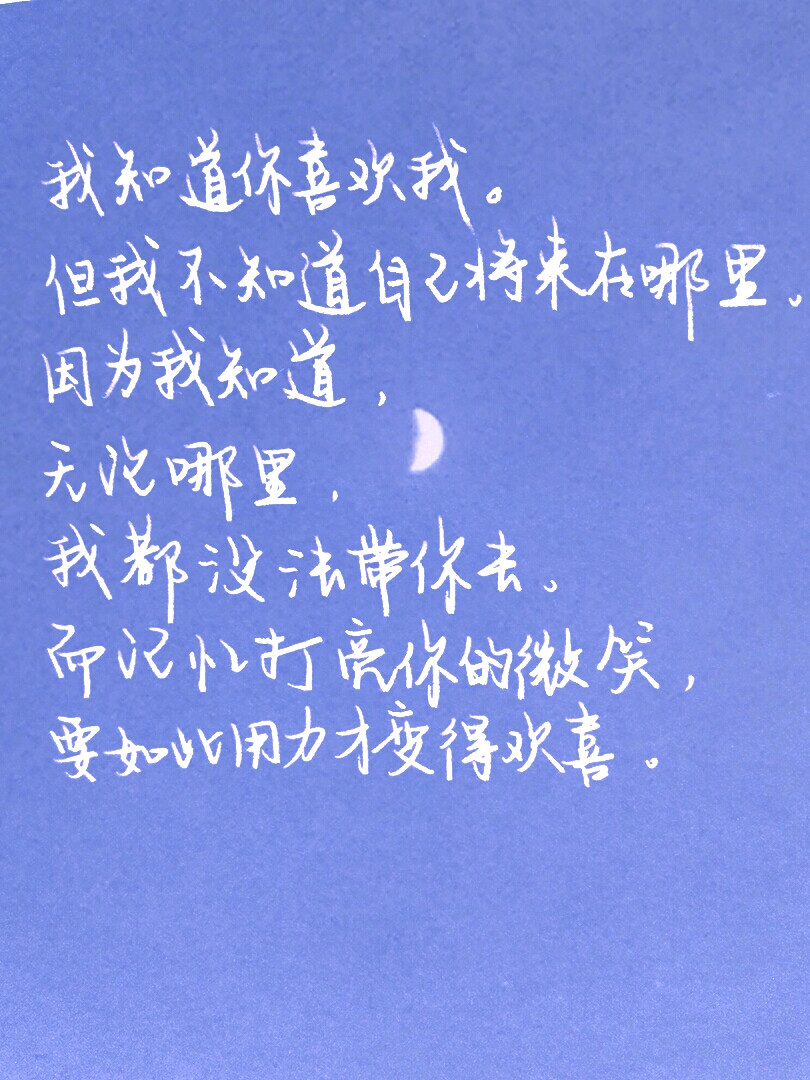 我知道你喜欢我。
但我不知道自己将来在哪里。
因为我知道，
无论哪里，
我都没法带你去。
而记忆打亮你的微笑，
要如此用力才变得欢喜。